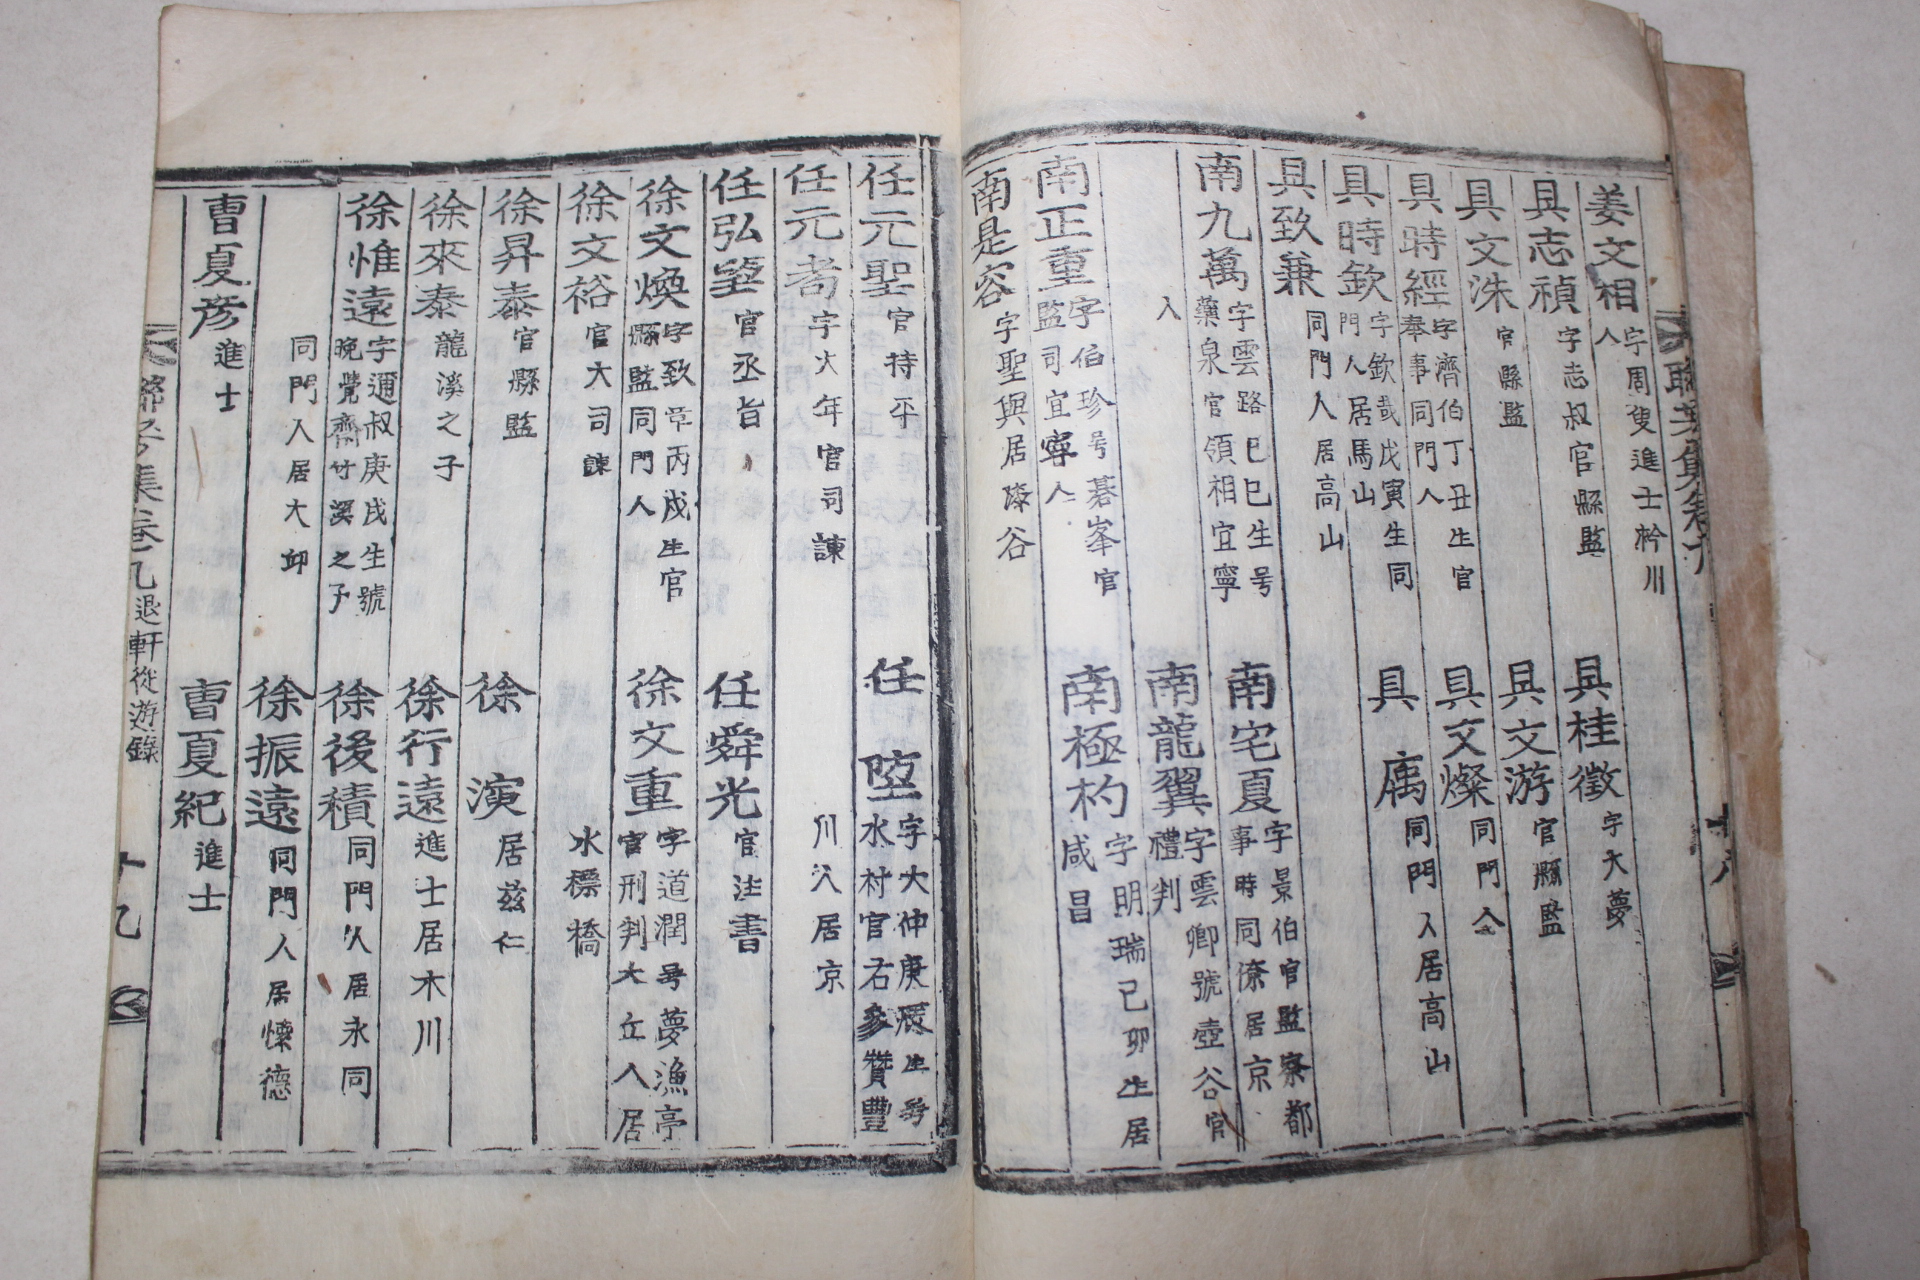 姜文相 字周叟進士衿川人
具桂徵 字大夢
具志禎 字志叔官縣監
具文游 官縣監
具文洙 官縣監
具文燦 同門人
具時經 字濟伯丁丑生官奉事同門人
具 㝢 同門入居高山
具時欽 字欽哉戊寅生同門人居馬山
具致兼 同門人居高山
南宅夏 字景伯官監察都事時同僚居京
南九萬 字雲路己巳生号藥泉官領相宜寧人
南龍翼 字雲卿號壺谷官禮判
南正重 字伯珍号碁峯官監司宜寧人
南極杓 字明瑞己卯生居咸昌
南是容 字聖與居漆谷
任元聖 官持平
任 堕 字大仲庚辰生号水村官右參贊豐川人居京
任元耇 字大年官司諫
任弘望 官丞旨
任舜光 官注書
徐文煥 字致章丙戌生官縣監同門人
徐文重 字道潤号夢漁亭官刑判大丘人居水標橋
徐文裕 官大司諫
徐昇泰 官縣監
徐 演 居玆仁
徐來泰 龍溪之子
徐行遠 進士居木川
徐惟遠 字邇叔庚戌生號晚覺齋竹溪之子同門入居大邱
徐後積 同門人居永同
徐振遠 同門人居懷德
曺夏彥 進士
曺夏紀 進士
集卷九 退軒從游錄 十九